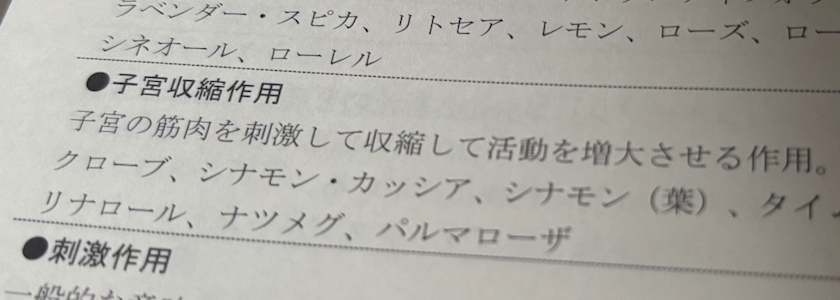 ラベンダー・スピカ、リトセア、レモン、ローズ、ロー
シネオール、ローレル
●子宮収縮作用
子宮の筋肉を刺激して収縮して活動を増大させる作用。
クローブ、シナモン・カッシア、シナモン（葉）、タイ
リナロール、ナツメグ、パルマローザ
●刺激作用
一般的な意味